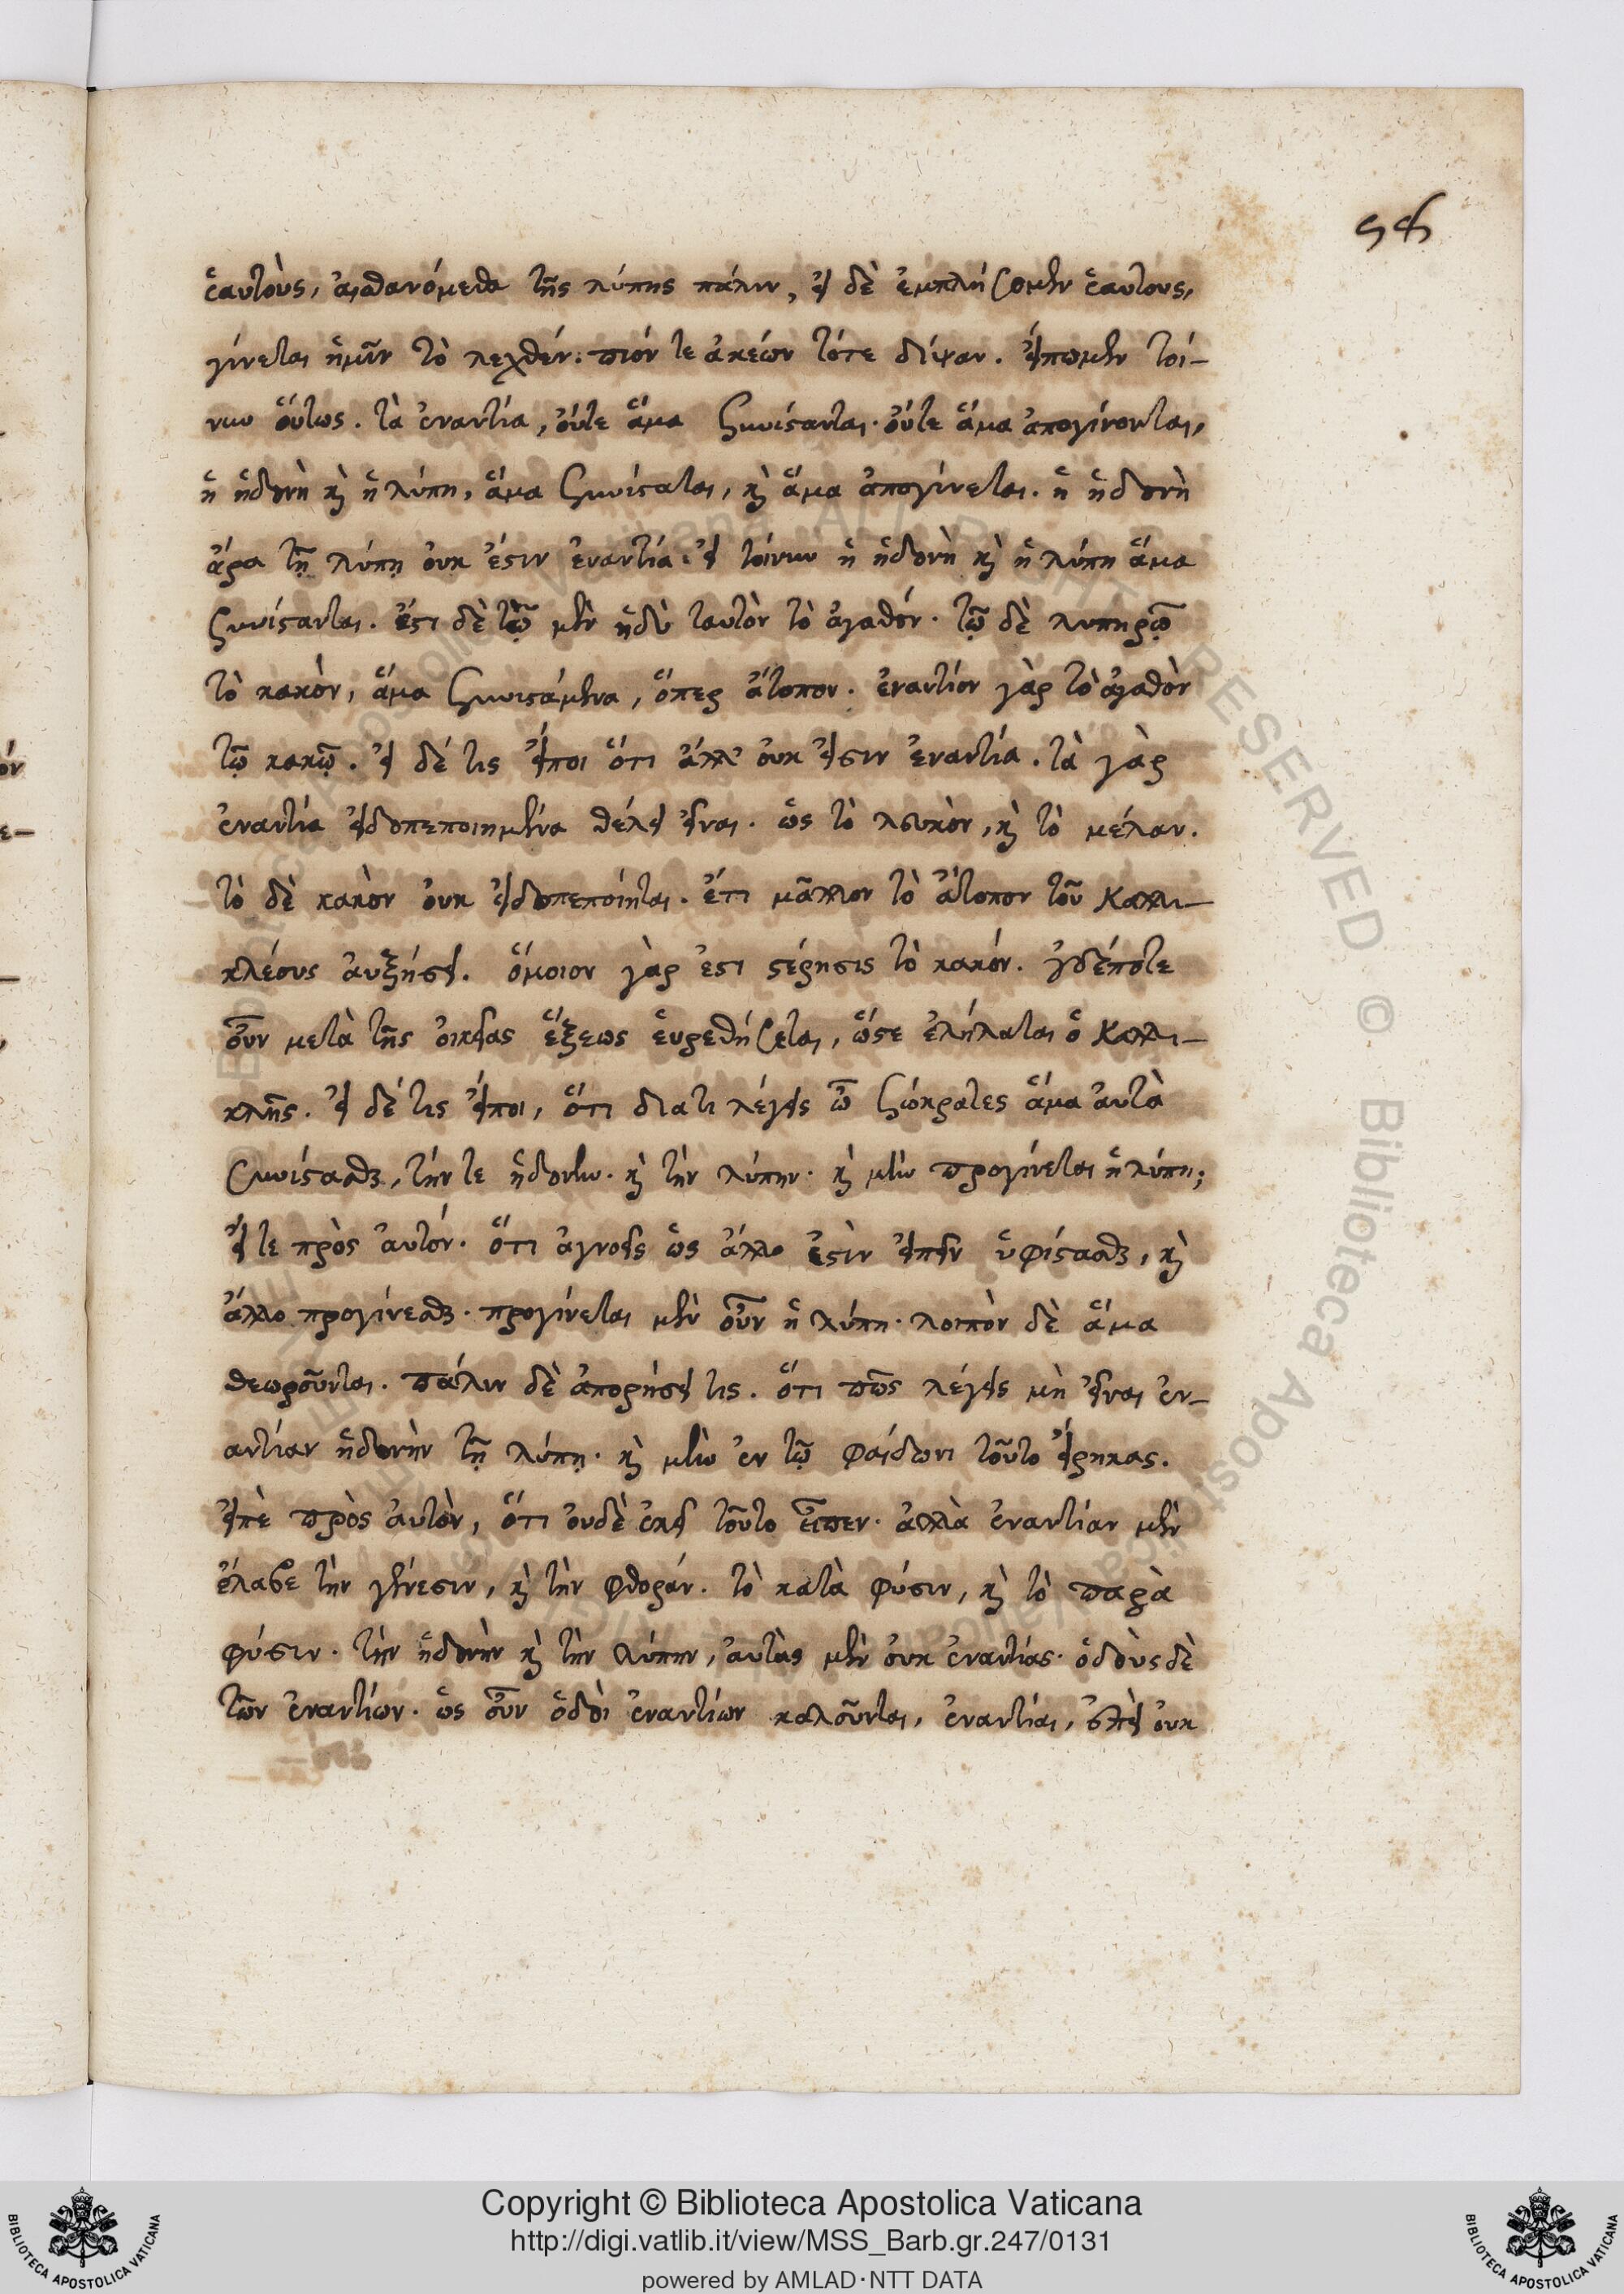 56
ἑαυτοὺς, αἰσθανόμεθα τῆς λύπης πάλιν, εἰ δὲ ἐμπλήσομεν ἑαυτους,
γίνεται ἡμῖν τὸ λεχθέν· πιόν τε ἀκέων τότε δίψαν. εἴπωμεν τοί-
νυν οὕτως. τὰ ἐναντία, οὔτε ἅμα συνίστανται· οὔτε ἅμα ἀπογίνονται,
ἡ ἡδονὴ καὶ ἡ λύπη, ἅμα συνίσταται, καὶ ἅμα ἀπογίνεται. ἡ ἡδονὴ
ἄρα τῇ λύπῃ οὐκ ἔστιν ἐναντία· εἰ τοίνυν ἡ ἡδονὴ καὶ ἡ λύπη ἅμα
συνίστανται. ἔστι δὲ τῷ μὲν ἡδὺ ταυτὸν τὸ ἀγαθόν· τῷ δὲ λυπηρῷ
τὸ κακὸν, ἅμα συνιστάμενα, ὅπερ ἄτοπον. ἐναντίον γὰρ τὸ ἀγαθὸν
τῷ κακῷ. εἰ δέ τις εἴποι ὅτι ἀλλ' οὐκ εἰσιν ἐναντία. τὰ γὰρ
ἐναντία εἰδοπεποιημένα θέλει εἶναι. ὡς τὸ λευκὸν, καὶ τὸ μέλαν.
τὸ δὲ κακὸν οὐκ εἰδοπεποίηται. ἔτι μᾶλλον τὸ ἄτοπον τοῦ Καλλι-
κλέους αὐξήσει. ὅμοιον γὰρ ἐστι στέρησις τὸ κακόν. οὐδέποτε
οὖν μετὰ τῆς οἰκείας ἕξεως εὑρεθήσεται, ὥστε ἐλήλαται ὁ Καλλι-
κλῆς. εἰ δέ τις εἴποι, ὅτι διατι λέγεις ὦ Σώκρατες ἅμα αὐτὰ
συνίστασθαι, τήν τε ἡδονὴν· καὶ τὴν λύπην· καὶ μὴν προγίνεται ἡ λύπη;
εἴ τε πρὸς αὐτόν· ὅτι ἀγνοεῖς ὡς ἄλλο ἐστὶν εἰπεῖν ὑφίστασθαι, καὶ
ἄλλο προγίνεσθαι· προγίνεται μὲν οὖν ἡ λύπη· λοιπὸν δὲ ἅμα
θεωροῦνται. πάλιν δὲ ἀπορήσει τις. ὅτι πῶς λέγεις μὴ εἶναι ἐν-
αντίαν ἡδονὴν τῇ λύπῃ· καὶ μὴν ἐν τῷ Φαίδωνι τοῦτο εἴρηκας.
εἰπὲ πρὸς αὐτὸν, ὅτι οὐδὲ ἐκεῖ τοῦτο εἶπεν· ἀλλὰ ἐναντίαν μὲν
ἔλαβε τὴν γένεσιν, καὶ τὴν φθοράν. τὸ κατὰ φύσιν, καὶ τὸ παρὰ
φύσιν· τὴν ἡδονὴν καὶ τὴν λύπην, αὐτὰς μὲν οὐκ ἐναντίας· ὁδοὺς δὲ
τῶν ἐναντίων· ὡς οὖν ὁδοὶ ἐναντίων καλοῦνται, ἐναντίαι, ἐπεὶ οὐκ
Copyright © Biblioteca Apostolica Vaticana
http://digi.vatlib.it/view/MSS_Barb.gr.247/0131
powered by AMLAD·NTT DATA